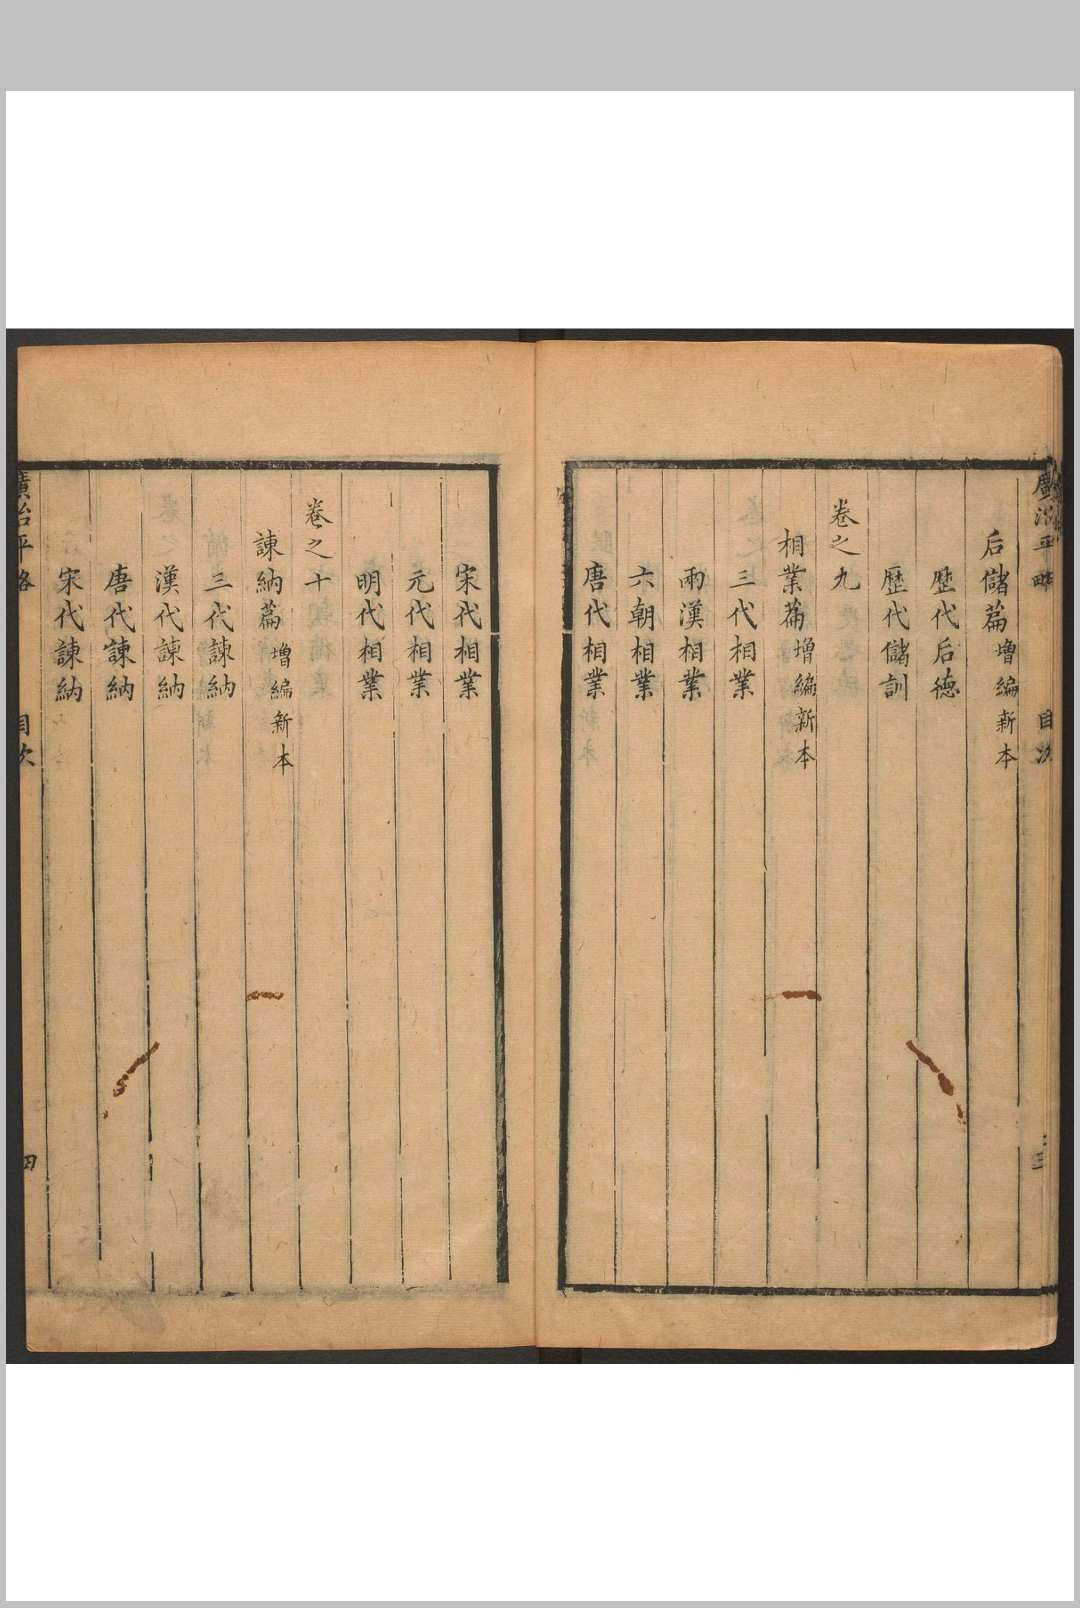 廣治平畧
目次
三
后儲篇增編新本
歷代后德
歷代儲訓
卷之九
相業篇增編新本
三代相業
兩漢相業
六朝相業
唐代相業
宋代相業
元代相業
明代相業
卷之十
諫納篇增編新本
三代諫納
漢代諫納
唐代諫納
宋代諫納
廣治平畧
目次
四